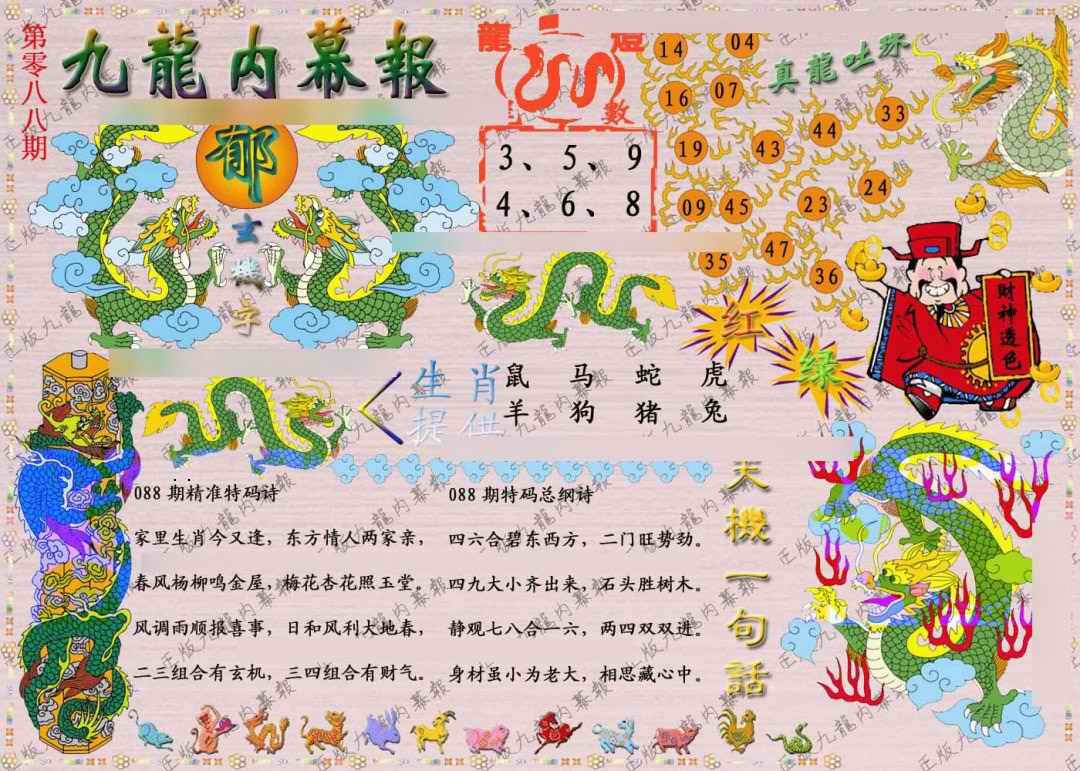 第零八八期
九龍内幕報
龍燈
數
3、5、9
4、6、8
14
04
16
07
19
43
44
33
09
45
23
24
35
47
36
真龍吐珠
郁
玄
機
字
红
绿
财神透色
生肖
提供
鼠 马 蛇 虎
羊 狗 猪 兔
088 期精准特码诗
家里生肖今又逢，东方情人两家亲，
春风杨柳鸣金屋，梅花杏花照玉堂。
风调雨顺报喜事，日和风利大地春，
二三组合有玄机，三四组合有财气。
088 期特码总纲诗
四六合碧东西方，二门旺势劲。
四九大小齐出来，石头胜树木。
静观七八合一六，两四双双进。
身材虽小为老大，相思藏心中。
天機一句話
正版九龍内幕報